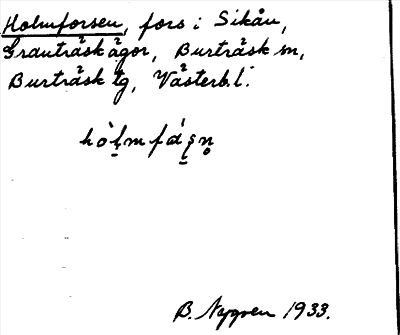 Holmforsen, fors i Sikån,
Granträskågor, Burträsk sn,
Burträsk tg, Västerb. l.
hò̀l̠mfáṣn̥
B. Nygren 1933.